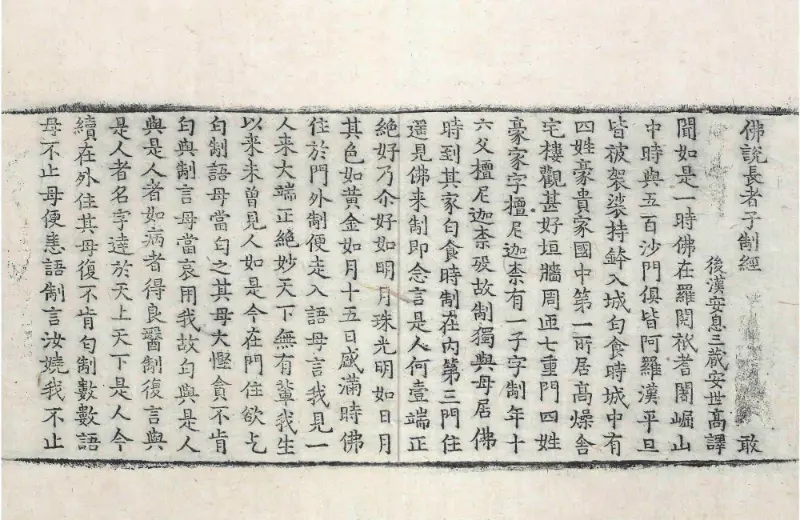 佛說長者子制經 敢
後漢安息三藏安世高譯
聞如是一時佛在羅閱祇耆闍崛山
中時與五百沙門俱皆阿羅漢平旦
皆被袈裟持鉢入城匃食時城中有
四姓豪貴家國中第一所居高燥舍
宅樓觀甚好垣牆周匝七重門四姓
豪家字檀尼迦柰有一子字制年十
六父檀尼迦柰殁故制獨與母居佛
時到其家匃食時制在內第三門住
遥見佛来制即念言是人何壹端正
絶好乃尒好如明月珠光明如日月
其色如黃金如月十五日盛滿時佛
住於門外制便走入語母言我見一
人来大端正絶妙天下無有輩我生
以来未曾見人如是今在門住欲乞
匃制語母當匃之其母大慳貪不肯
匃與制言母當哀用我故匃與是人
與是人者如病者得良醫制復言與
是人者名字達於天上天下是人今
續在外住其母復不肯匃制數數語
母不止母便恚語制言汝嬈我不止